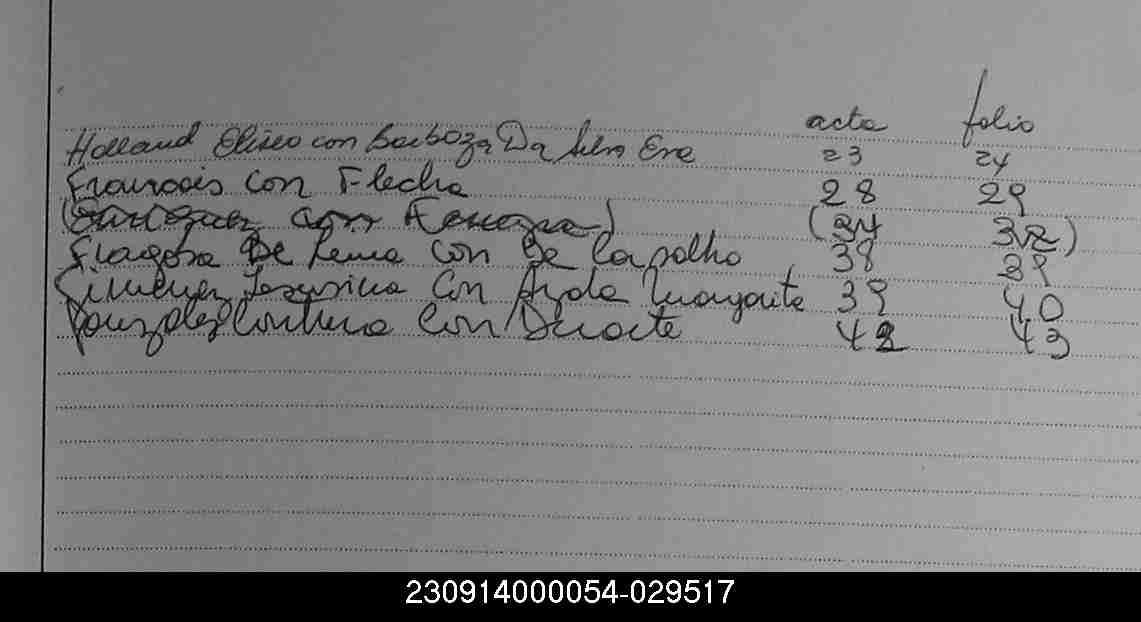 acta folio
Holland Eliseo con Barboza Da Silva Eva 23 24
Francois con Flecha 28 29
( con ) (34 32)
Fragosa De Lema con De Carvalho 38 39
Gimenez con Ayala Margarite 39 40
Gonzalez con Duarte 42 43
230914000054-029517